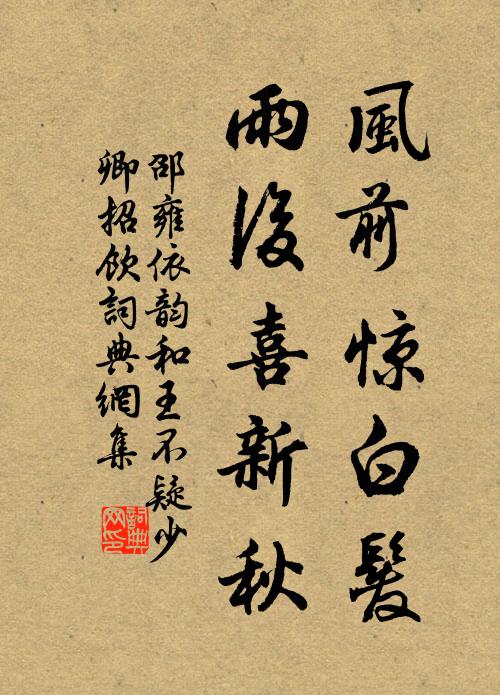 風前惊白髮
雨後喜新秋
邵雍依韵和王不疑少
卿招飲詞典網集
詞典网印